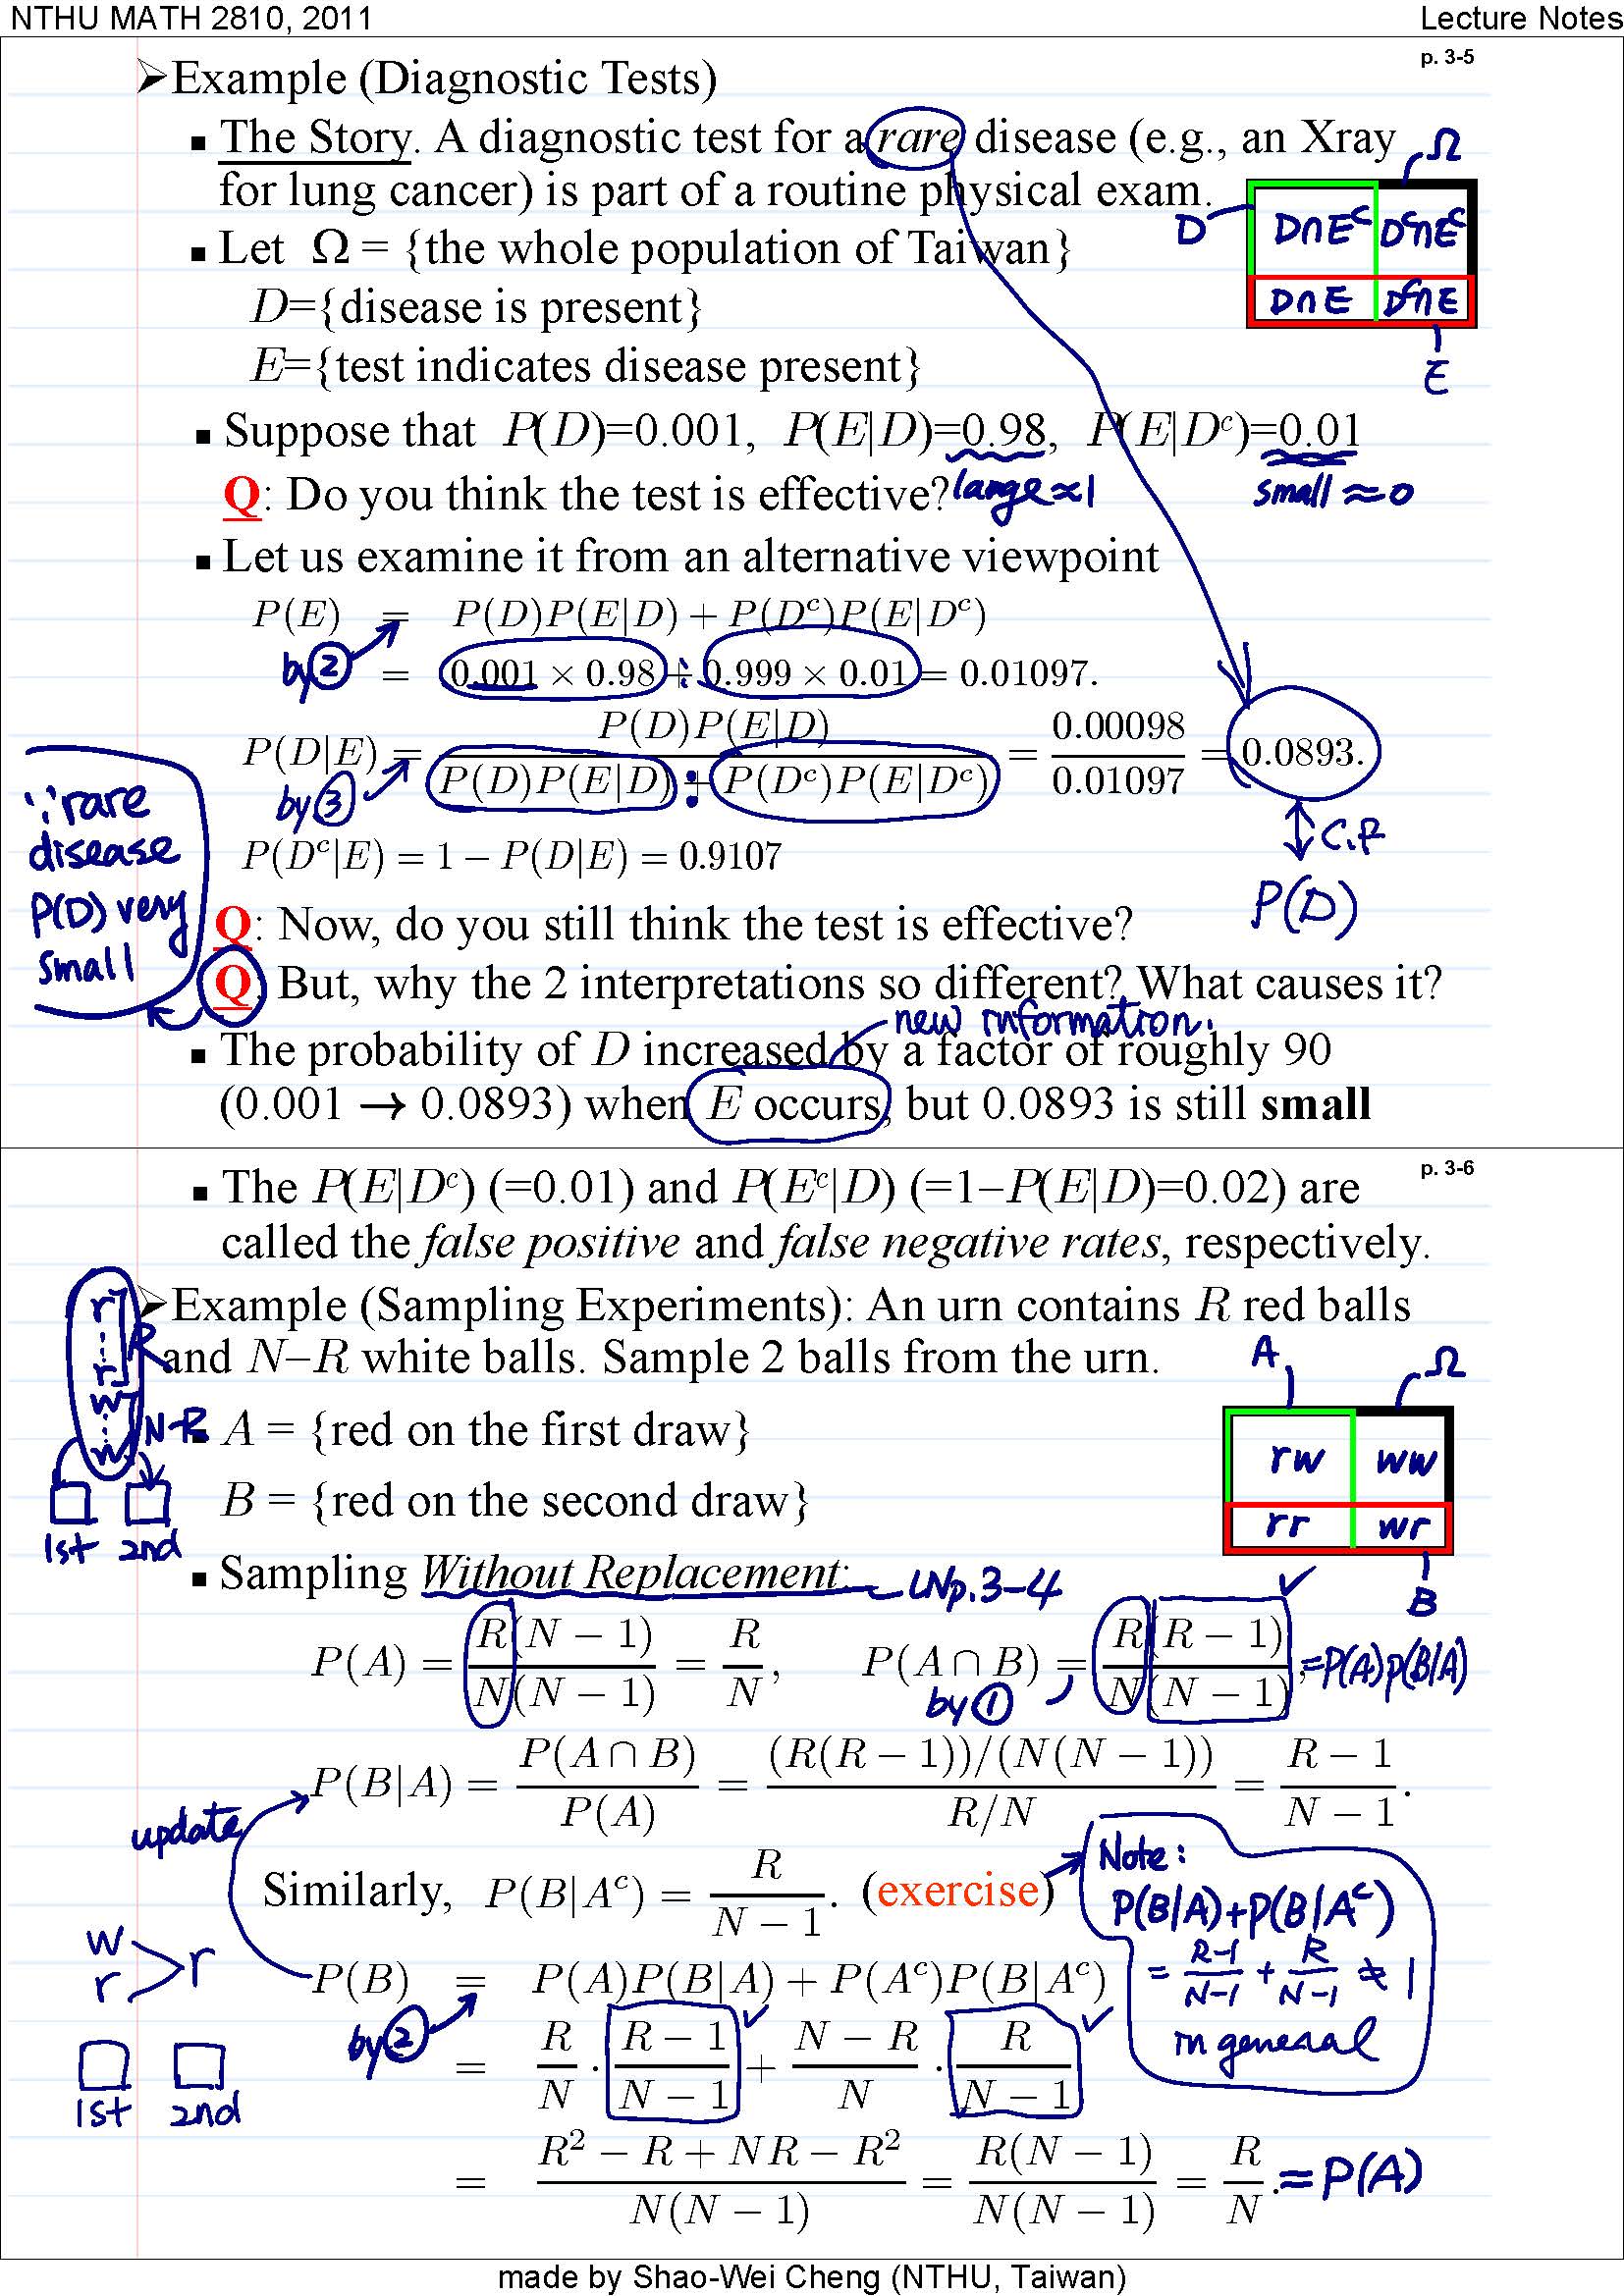 NTHU MATH 2810, 2011 Lecture Notes
p. 3-5
➢Example (Diagnostic Tests)
▪ The Story. A diagnostic test for a rare disease (e.g., an Xray
for lung cancer) is part of a routine physical exam.
Ω
D D∩Eᶜ Dᶜ∩Eᶜ
D∩E Dᶜ∩E
E
▪ Let Ω = {the whole population of Taiwan}
D={disease is present}
E={test indicates disease present}
▪ Suppose that P(D)=0.001, P(E|D)=0.98, P(E|Dᶜ)=0.01
Q: Do you think the test is effective? large≈1 small≈0
▪ Let us examine it from an alternative viewpoint
P(E) = P(D)P(E|D) + P(Dᶜ)P(E|Dᶜ)
by ② = 0.001 × 0.98 + 0.999 × 0.01 = 0.01097.
P(D|E) = P(D)P(E|D) / (P(D)P(E|D) + P(Dᶜ)P(E|Dᶜ)) = 0.00098 / 0.01097 = 0.0893.
by ③
↕ C.F
P(D)
P(Dᶜ|E) = 1 − P(D|E) = 0.9107
∵ rare
disease
P(D) very
small
Q: Now, do you still think the test is effective?
Q: But, why the 2 interpretations so different? What causes it?
new information.
▪ The probability of D increased by a factor of roughly 90
(0.001 → 0.0893) when E occurs, but 0.0893 is still small
p. 3-6
▪ The P(E|Dᶜ) (=0.01) and P(Eᶜ|D) (=1–P(E|D)=0.02) are
called the false positive and false negative rates, respectively.
➢Example (Sampling Experiments): An urn contains R red balls
and N–R white balls. Sample 2 balls from the urn.
r
⋮
r
R
w
⋮
w
N-R
1st 2nd
A Ω
rw ww
rr wr
B
▪ A = {red on the first draw}
B = {red on the second draw}
▪ Sampling Without Replacement: LNp.3-4
P(A) = R(N − 1) / N(N − 1) = R / N, P(A ∩ B) = R(R − 1) / N(N − 1), =P(A)P(B|A)
by ①
P(B|A) = P(A ∩ B) / P(A) = (R(R − 1))/(N(N − 1)) / R/N = R − 1 / N − 1.
update
Similarly, P(B|Aᶜ) = R / N − 1. (exercise)
Note:
P(B|A)+P(B|Aᶜ)
= R-1 / N-1 + R / N-1 ≠ 1
in general
w
r > r
1st 2nd
P(B) = P(A)P(B|A) + P(Aᶜ)P(B|Aᶜ)
by ② = R / N · R − 1 / N − 1 + N − R / N · R / N − 1
= R² − R + NR − R² / N(N − 1) = R(N − 1) / N(N − 1) = R / N. =P(A)
made by Shao-Wei Cheng (NTHU, Taiwan)